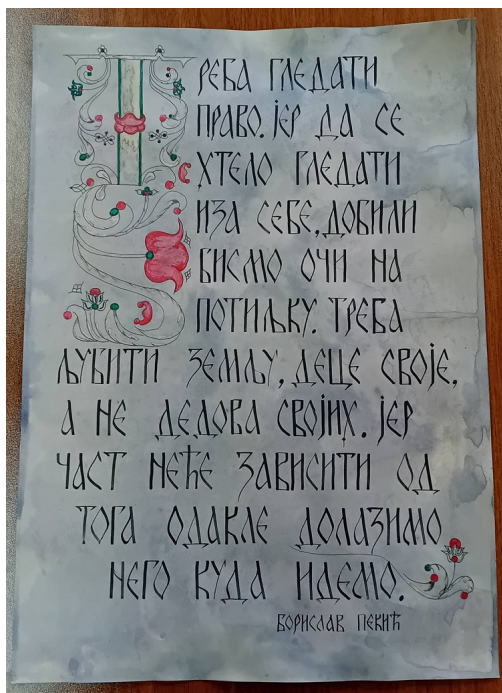 ТРЕБА ГЛЕДАТИ
ПРАВО. ЈЕР ДА СЕ
ХТЕЛО ГЛЕДАТИ
ИЗА СЕБЕ, ДОБИЛИ
БИСМО ОЧИ НА
ПОТИЉКУ. ТРЕБА
ЉУБИТИ ЗЕМЉУ, ДЕЦЕ СВОЈЕ,
А НЕ ДЕДОВА СВОЈИХ. ЈЕР
ЧАСТ НЕЋЕ ЗАВИСИТИ ОД
ТОГА ОДАКЛЕ ДОЛАЗИМО
НЕГО КУДА ИДЕМО.
БОРИСЛАВ ПЕКИЋ